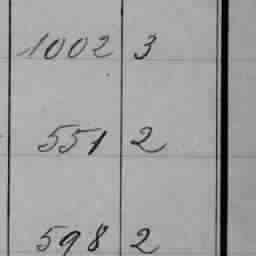 1002 3
551 2
598 2